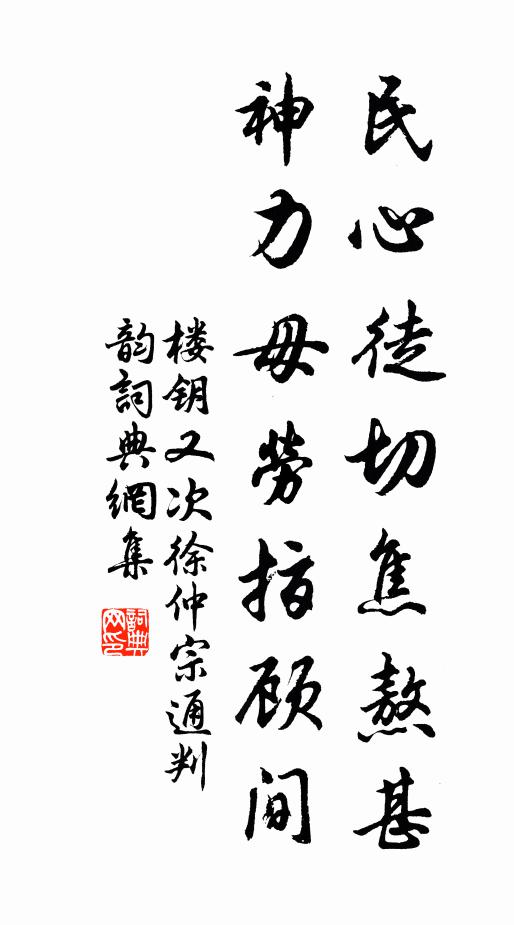 民心徒切焦熬甚
神力毋劳指顾间
楼钥又次徐仲宗通判
韵詞典網集
詞典網印